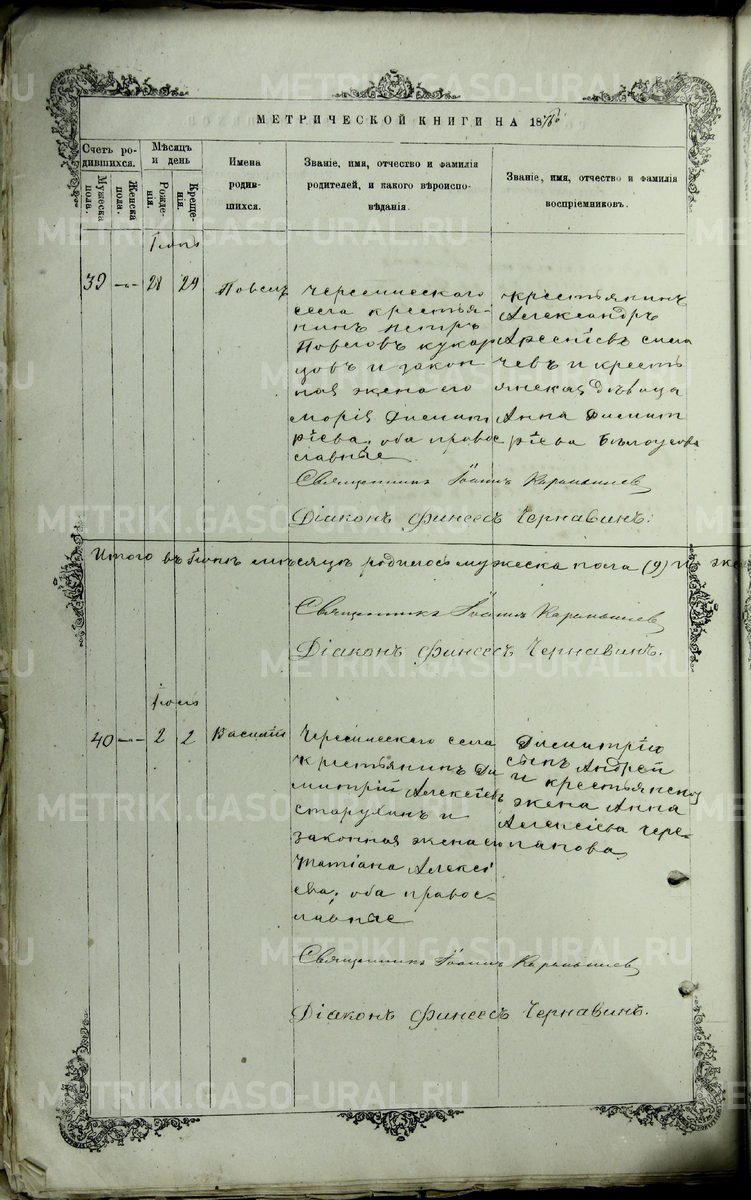 МЕТРИЧЕСКОЙ КНИГИ НА 18
Счетъ ро-
дившихся.
Мужеска
пола.
Женска
пола.
Мѣсяцъ
и день
Рожде-
нія.
Креще-
нія.
Имена
родив-
шихся.
Званіе, имя, отчество и фамилія
родителей, и какого вѣроиспо-
вѣданія.
Званіе, имя, отчество и фамилія
воспріемниковъ.
Іюнь
39 — 21 24 Павелъ
села крестья-
нинъ Петръ
Павловъ Кукар
цовъ и закон
ная жена его
Марія Димит
ріева, оба правос
лавные
крестьянинъ
Александръ
Арсеніевъ
чевъ и кресть
янская дѣвица
Анна Димит
ріева Бѣлоусова
Священникъ Іоаннъ
Діаконъ Финеесъ Чернавинъ.
Итого въ Іюнѣ мѣсяцѣ родилось мужеска пола (9) и
Священникъ Іоаннъ
Діаконъ Финеесъ Чернавинъ.
Іюль
40 — 2 2 Василій
села
крестьянинъ Ди
митрій Алексѣевъ
Старухинъ и
законная жена его
Татіана Алексѣ
ева, оба правос-
лавные
Димитрію
сынъ Андрей
и крестьянская
жена Анна
Алексѣева Чере-
панова
Священникъ Іоаннъ
Діаконъ Финеесъ Чернавинъ.
METRIKI.GASO-URAL.RU